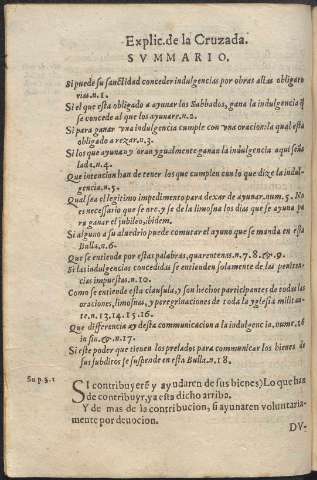 Explic. de la Cruzada.
SVMMARIO.
Si puede su sanctidad conceder indulgencias por obras alias obligato
rias. n. 1.
Si el que esta obligado a ayunar los Sabbados, gana la indulgencia q̃
se concede al que los ayunare. n. 2.
Si para ganar vna indulgencia cumple con vna oracion: la qual esta
obligado a rezar. n. 3.
Si los que ayunan y oran ygualmente ganan la indulgencia aqui seña
lada. n. 4.
Que intencion han de tener los que cumplen con lo que dize la indul-
gencia. n. 5.
Qual sea el legitimo impedimento para dexar de ayunar. num. 5. No
es necessario que se ore, y se de la limosna los dias que se ayuna pa
ra ganar el jubileo, ibidem.
Si alguno a su aluedrio puede comutar el ayuno que se manda en esta
Bulla. n. 6.
Que se entiende por estas palabras, quarentenas. n. 7. 8. & 9.
Si las indulgencias concedidas se entienden solamente de las peniten
cias impuestas. n. 10.
Como se entiende esta clausula, y son hechos participantes de todas las
oraciones, limosnas, y peregrinaciones de toda la yglesia militan
te. n. 13. 14. 15. 16.
Que differencia ay desta communicacion a la indulgencia, nume. 16
in fin. & n. 17.
Si este poder que tienen los prelados para communicar los bienes de
sus subditos se suspende en esta Bulla. n. 18.
Su p. §. 1
SI contribuyerẽ y ayudaren de sus bienes) Lo que han
de contribuyr, ya esta dicho arriba.
Y de mas de la contribucion, si ayunaren voluntaria-
mente por deuocion.
DV-